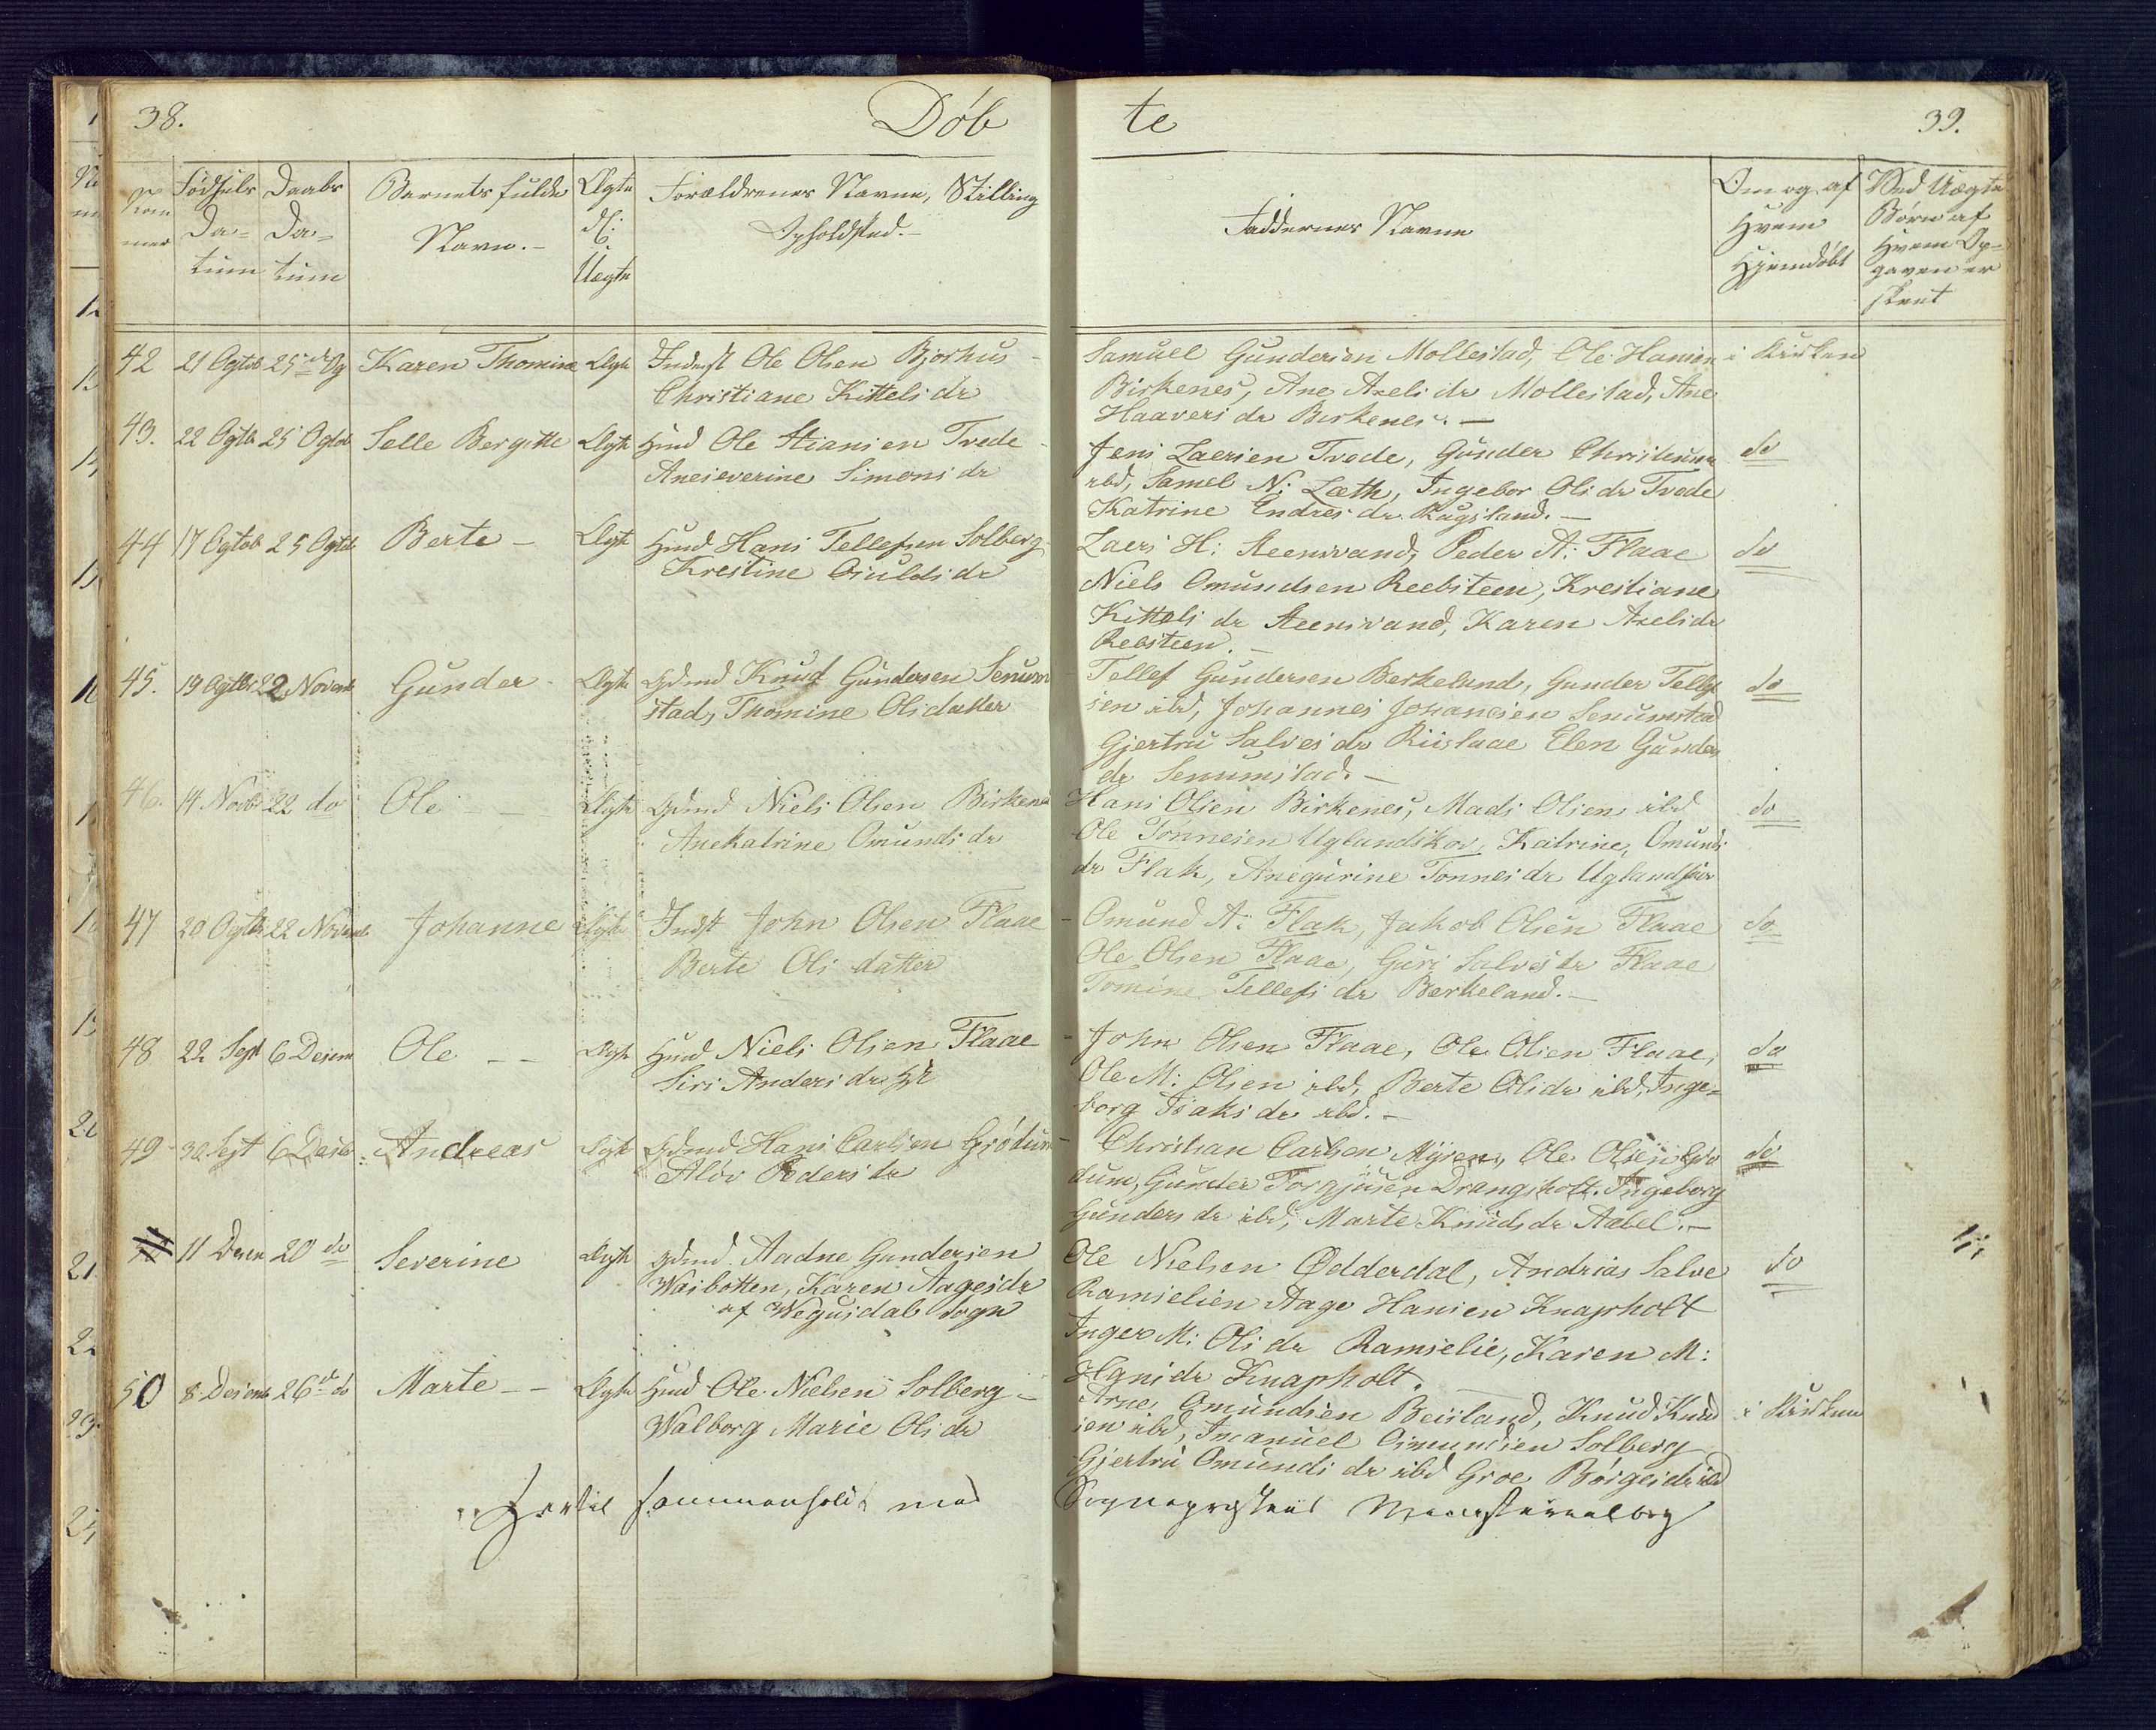 38.
Döb
te
39.
Num
mer
Fødsels
Da-
tum
Daabs
Da-
tum
Barnets fulde
Navn.-
Ægte
el:
Uægte
Forældrenes Navne, Stilling
Opholdsted.-
Faddernes Navne
Om og af
Hvem
Hjemdøbt
Ved Uægte
Børn af
Hvem Op-
gaven er
skeet
42 21 Ogtob 25de Og Karen Thomine Ægte Inderst Ole Olsen Bjorhus -
Christiane Kittelsdr
Samuel Gundersen Mollestad, Ole Hansen i Kirken
Birkenes, Ane Axelsdr Mollestad, Ane
Haaversdr Birkenes. -
43. 22 Ogtb 25 Ogtob Selle Bergitte Ægte Huusd Ole Stiansen Tvede -
Aneseverine Simonsdr
Jens Laersen Tvede, Gunder Christensen do
ibd, Samel N: Læth, Ingebor Olsdr Tvede
Katrine Endresdr Rugsland. -
44 17 Ogtob 25 Ogtob Berte - Ægte Huusd Hans Tellefsen Solberg
Krestine Osuldsdr
Laers H: Steenvand, Peder A: Flaae do
Niels Omundsen Reebsteen, Krestiane
Kittelsdr Steensvand, Karen Axelsdr
Rebsteen. -
45. 19 Ogtbr 22 Novemb Gunder - Ægte Gdmd Knud Gundersen Senum
stad, Thomine Olsdatter
Tellef Gundersen Berkeland, Gunder Tellef do
sen ibd, Johannes Johansen Senumstad
Gjertru Salvesdr Riislaae Elen Gunders
dr Senumstad. -
46. 14 Novbr 22 do Ole - - Ægte Gdmd Niels Olsen Birkenes
Anekatrine Omundsdr
Hans Olsen Birkenes, Mads Olsen ibd do
Ole Tonnesen Uglandskov, Katrine Omunds
dr Flak, Anegurine Tonnesdr Uglandskov
47 20 Ogtbr 22 Novemb Johanne Ægte Indst John Olsen Flaae
Berte Olsdatter
- Omund A: Flak, Jakob Olsen Flaae do
Ole Olsen Flaae, Guri Salvesdr Flaae
Tomine Tellefsdr Berkeland. -
48 22 Sept 6 Desem Ole - - Ægte Huusd Niels Olsen Flaae
Siri Andersdr
- John Olsen Flaae, Ole Olsen Flaae, do
Ole M: Olsen ibd, Berte Olsdr ibd, Inge-
borg Isaksdr ibd. -
49 - 30 Sept 6 Desb: Andreas Ægte Gdmd Hans Carlsen Grödum
Alöv Pedersdr
- Christian Carlsen Myren, Ole Olsen Grö do
dum, Gunder Torgjusen Drangsholt. Ingeborg
Gundersdr ibd, Marte Knudsdr Aabel. -
11 Desem 20 do Severine Ægte Gdmd Aadne Gundersen
Waibotten, Karen Aagesdr
af Wegusdal sogn
Ole Nielsen Ødderdal, Andrias Salve do
Ramselien Aage Hansen Knapholt
Inger M: Olsdr Ramselie, Karen M:
Knapholt.
50 8 Desemb 26de do Marte - - Ægte Huusd Ole Nielsen Solberg -
Walborg Marie Olsdr
Arne Omundsen Beisland, Knud Knud i Kirken
sen ibd, Imanuel Osmundsen Solberg
Gjertru Omundsdr ibd Groe Börgesdr ibd
Hertil sammenholdt med Sognepræstens Ministerialbog